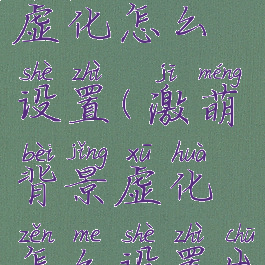 虚化怎么
shè zhì jī méng
设置(激萌
bèi jǐng xū huà
背景虚化
zěn me shè zhì chū
怎么设置出